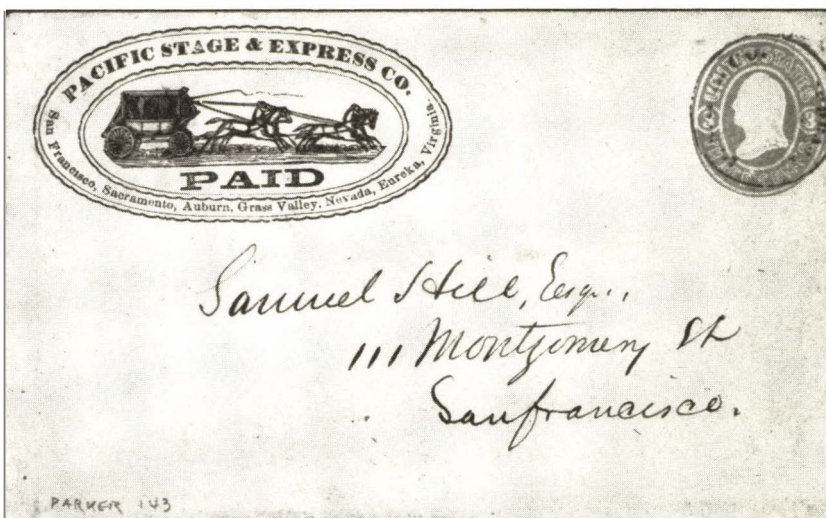 PACIFIC STAGE & EXPRESS CO.
PAID
San Francisco, Sacramento, Auburn, Grass Valley, Nevada, Eureka, Virginia.
Samuel Hill, Esq.,
111 Montgomery St
San francisco.
PARKER 143